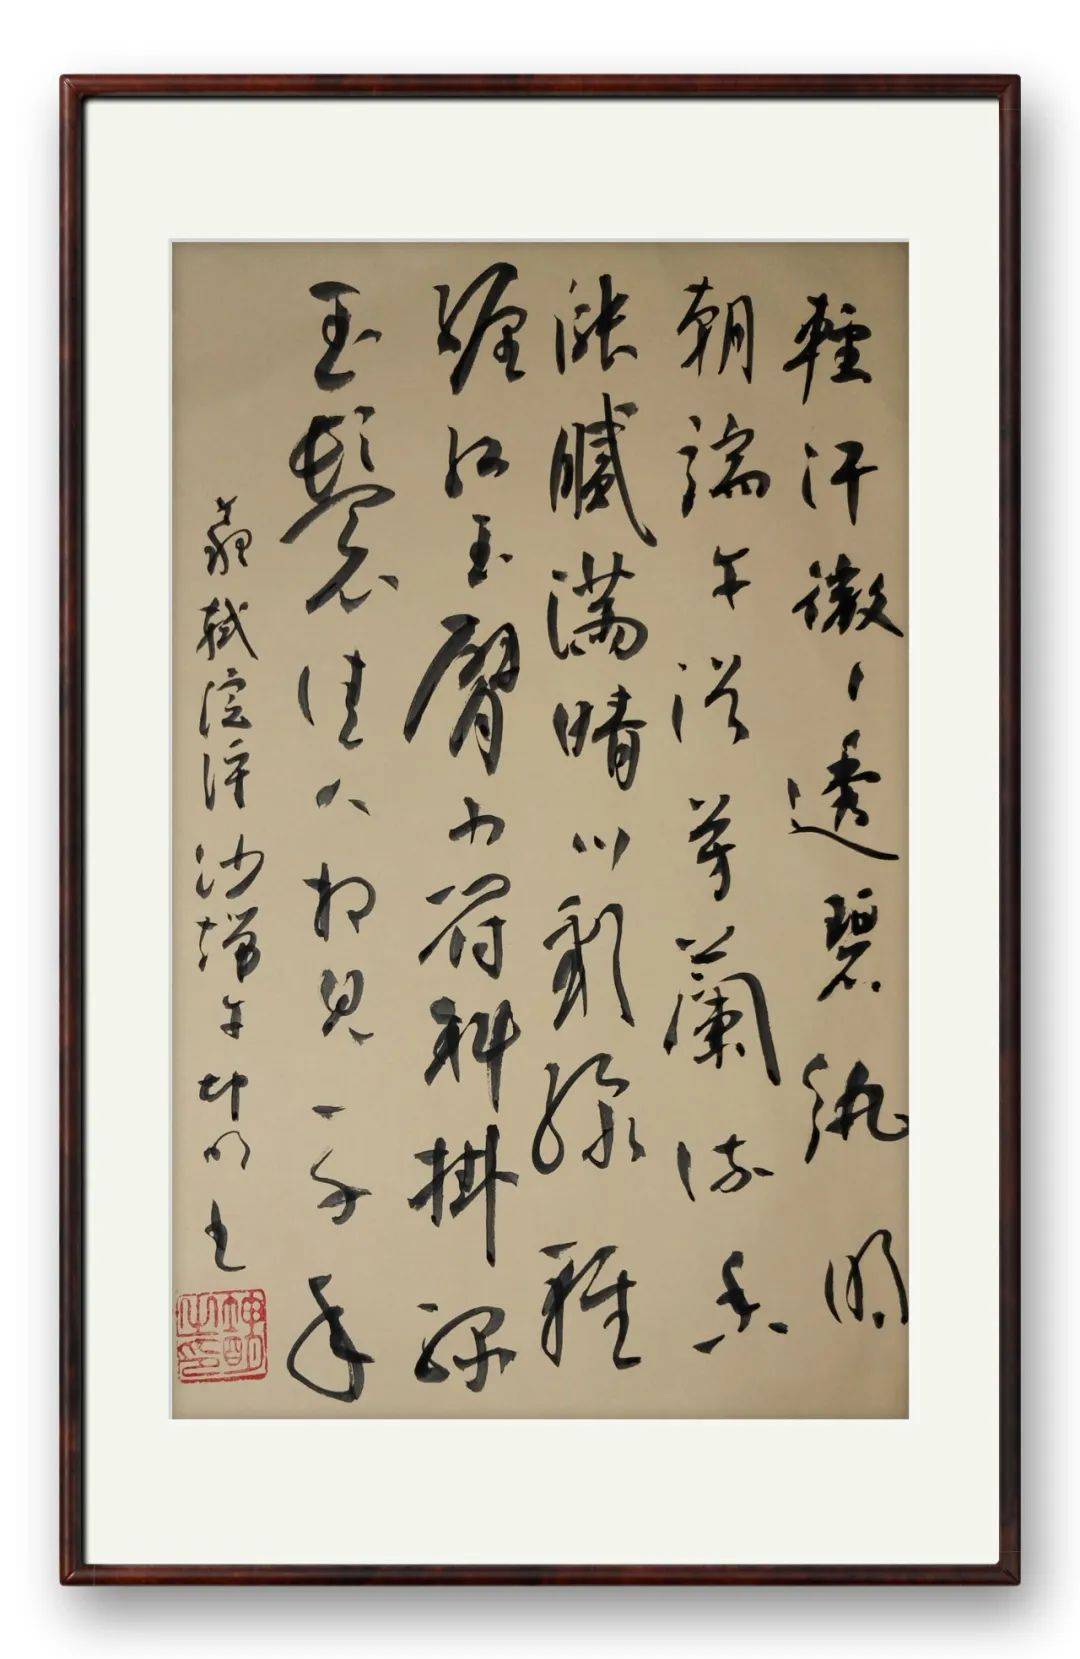 輕汗微〻透碧紈明
朝端午浴芳蘭流香
漲膩滿晴川彩線輕
纏紅玉臂小符斜掛綠
玉鬟佳人相見一千年
蘇軾浣溪沙端午坤明书